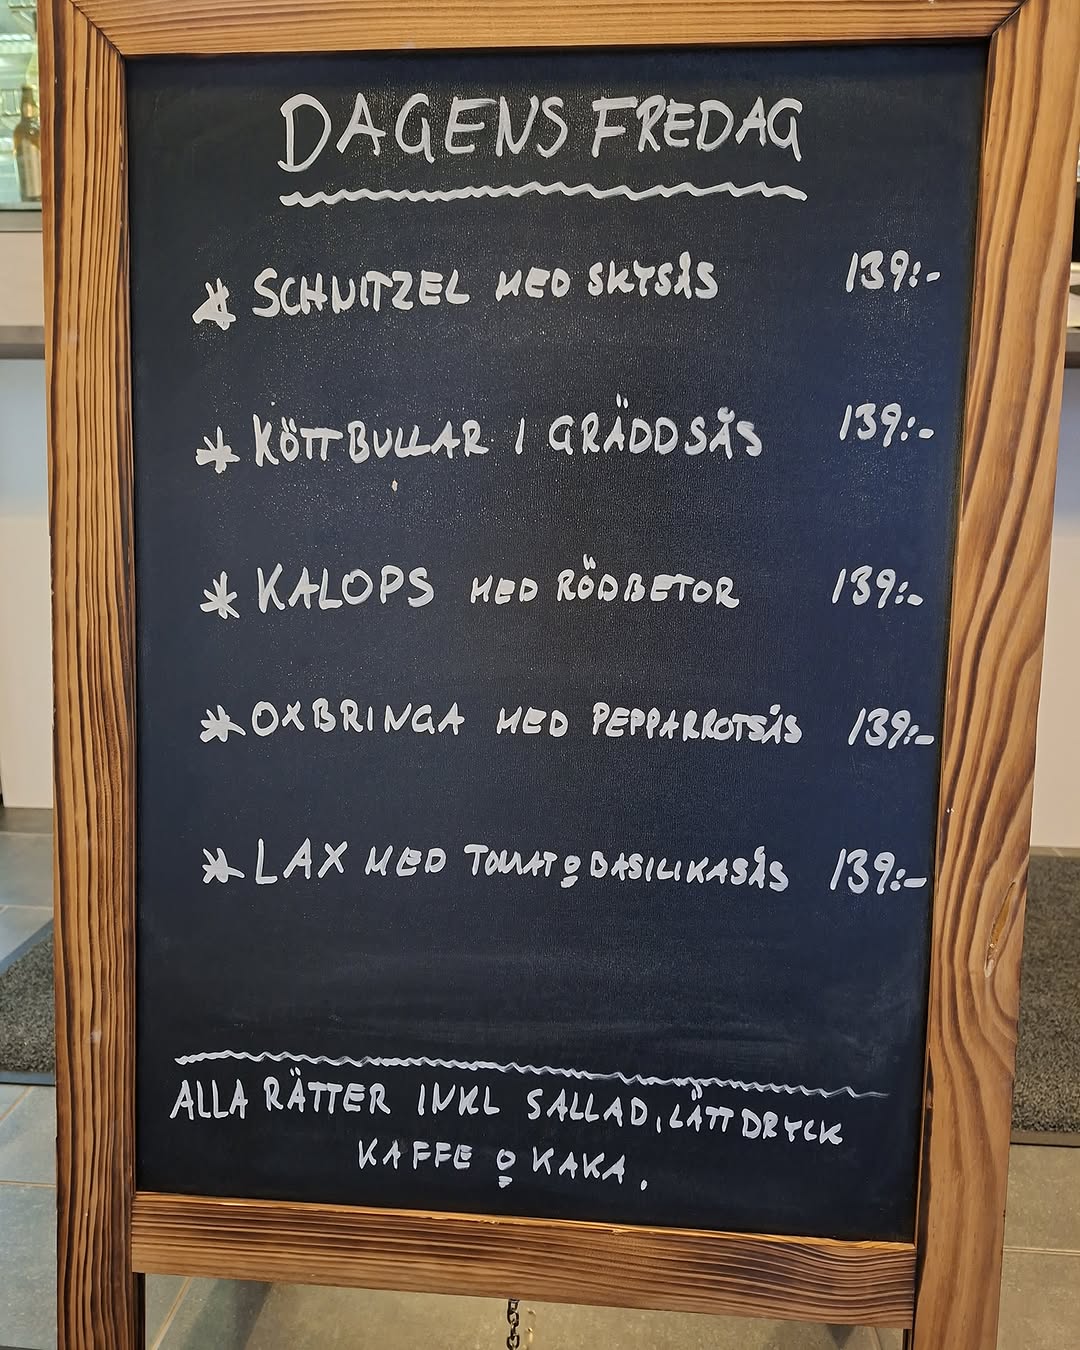 DAGENS FREDAG
* SCHNITZEL MED SKYSÅS 139:-
* KÖTTBULLAR I GRÄDDSÅS 139:-
* KALOPS MED RÖDBETOR 139:-
* OXBRINGA MED PEPPARROTSÅS 139:-
* LAX MED TOMAT o BASILIKASÅS 139:-
ALLA RÄTTER INKL SALLAD, LÄTTDRYCK
KAFFE o KAKA.